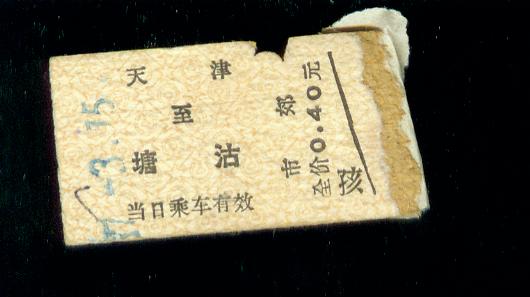 天津
至
塘沽
当日乘车有效
市郊
全价0.40元
孩
-3.15